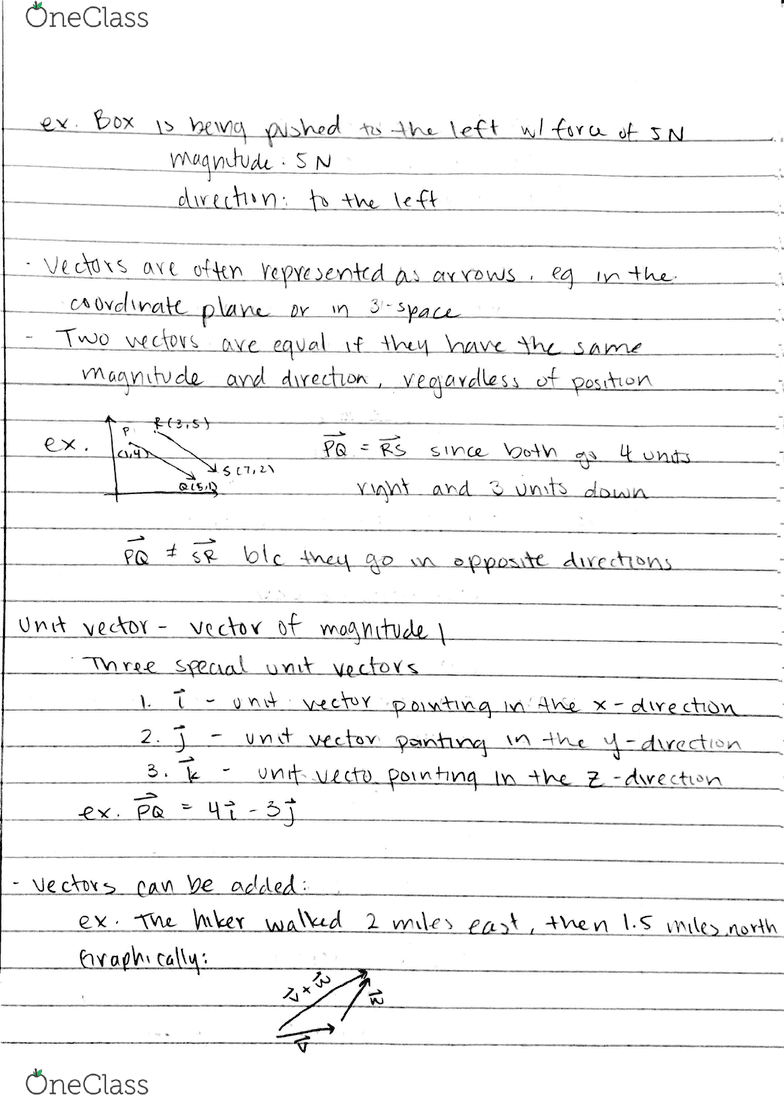 OneClass
ex. Box is being pushed to the left w/ force of 5N
magnitude. 5N
direction: to the left
· Vectors are often represented as arrows, eg in the
coordinate plane or in 3-space
- Two vectors are equal if they have the same
magnitude and direction, regardless of position
ex.
P
(1,4)
R(3,5)
S(7,2)
Q(5,1)
PQ⃗ = RS⃗ since both go 4 units
right and 3 units down
PQ⃗ ≠ SR⃗ b/c they go in opposite directions
Unit vector - vector of magnitude 1
Three special unit vectors
1. i⃗ - unit vector pointing in the x-direction
2. j⃗ - unit vector pointing in the y-direction
3. k⃗ - unit vecto pointing in the z-direction
ex. PQ⃗ = 4i⃗ - 3j⃗
- Vectors can be added:
ex. The hiker walked 2 miles east, then 1.5 miles north
Graphically:
v⃗ + w⃗
w⃗
v⃗
OneClass